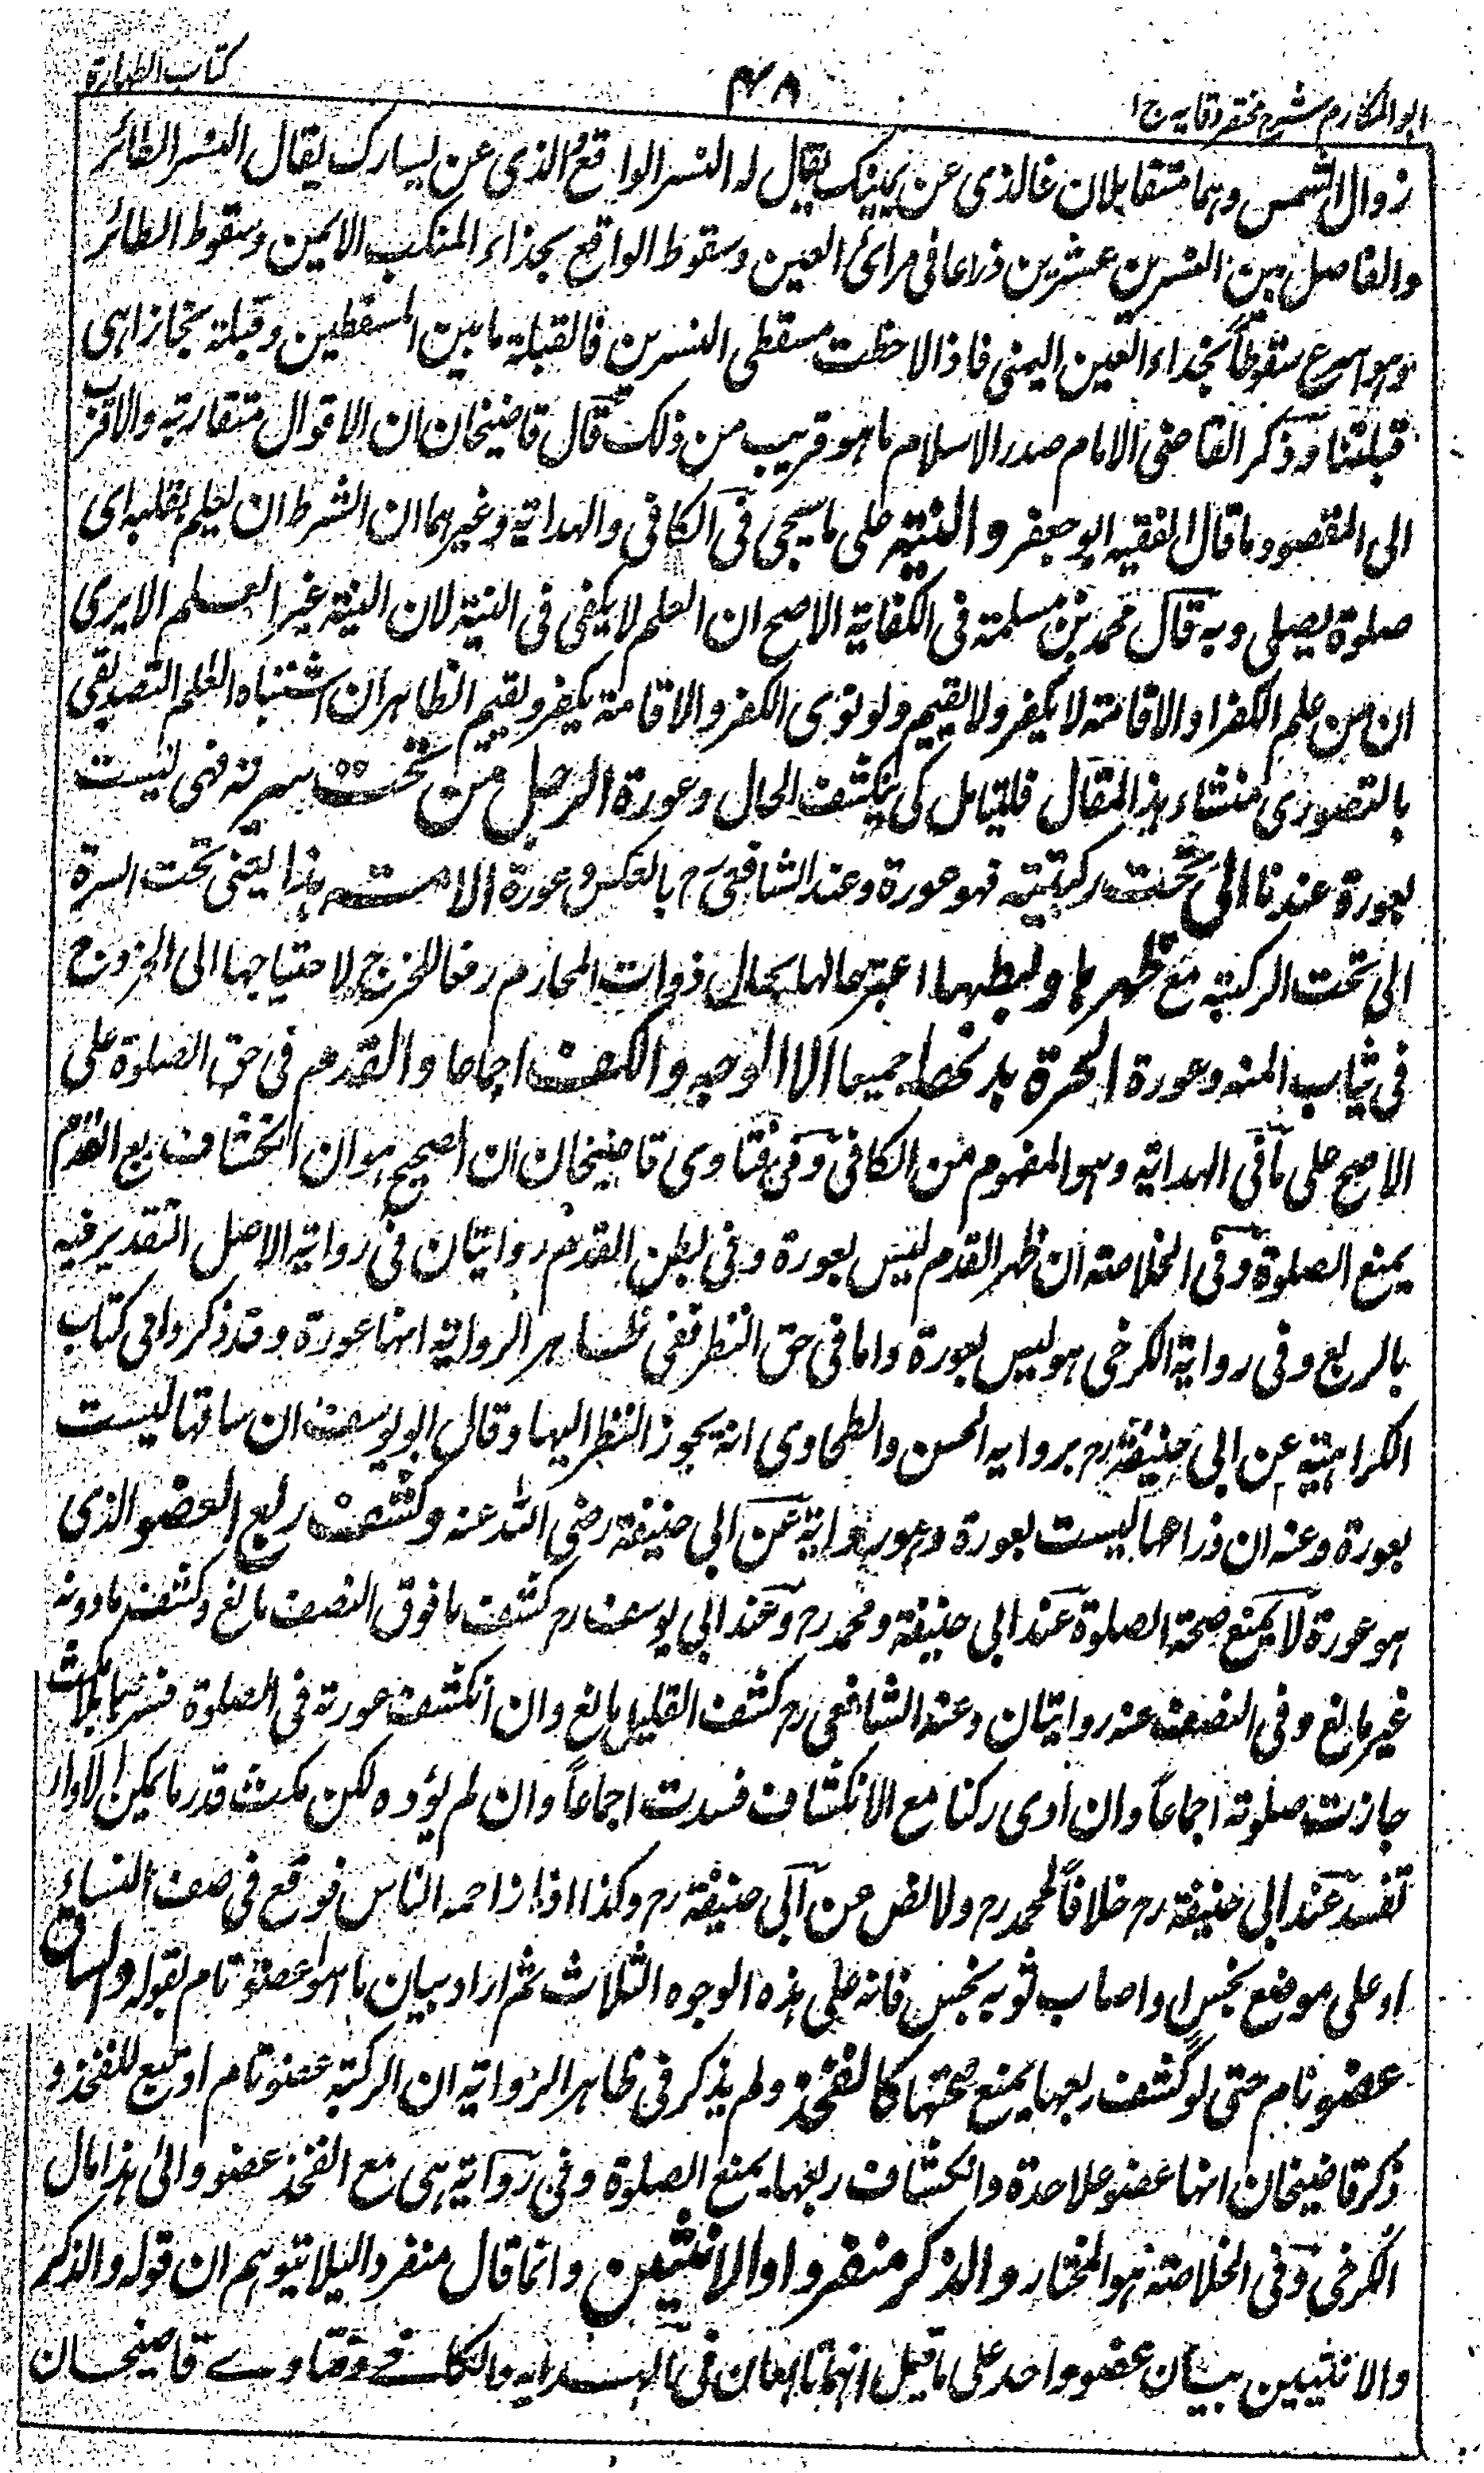 ابو المکارم شرح مختصر وقایه ج ا
۴۸
کتاب الطهارة
زوال الشمس وهما متقابلان فالذی عن یمینک یقال له النسر الواقع والذی عن یسارک یقال النسر الطائر
والفاصل بین النسرین عشرین ذراعا فی مرائ العین وسقوط الواقع بحذاء المنکب الایمن وسقوط الطائر
وهو اسرع سقوطاً بحذاء العین الیمنی فاذا لاحظت مسقطی النسرین فالقبلة ما بین المسقطین وقبلة بخارا هی
قبلتنا وذکر القاضی الامام صدر الاسلام ما هو قریب من ذلک قال قاضیخان ان الاقوال متقاربة والاقرب
الی المقصود ما قال الفقیه ابو جعفر والنیة علی ما سیجئ فی الکافی والهدایة وغیرهما ان الشرط ان یعلم بقلبه ای
صلوة یصلی وبه قال محمد بن مسلمة فی الکفایة الاصح ان العلم لا یکفی فی النیة لان النیة غیر العلم الا یری
ان من علم الکفر او الاقامة لا یکفر ولا یقیم ولو نوی الکفر والاقامة یکفر ویقیم الظاهر ان اشتباه العلم التصدیقی
بالتصوری منشاء هذا المقال فلیتامل کی ینکشف الحال وعورة الرجل من تحت سرته فهی لیست
بعورة عندنا الی تحت رکبتیه فهو عورة وعند الشافعی رح بالعکس وعورة الامة هذا یعنی تحت السرة
الی تحت الرکبة مع ظهرها وبطنها اعتبر حالها بحال ذوات المحارم رفعا للحرج لاحتیاجها الی الخروج
فی ثیاب المهنه وعورة الحرة بدنها جمیعا الا الوجه والکف اجماعا والقدم فی حق الصلوة علی
الاصح علی ما فی الهدایة وهو المفهوم من الکافی وفی فتاوی قاضیخان ان الصحیح هو ان انکشاف ربع القدم
یمنع الصلوة وفی الخلاصة ان ظهر القدم لیس بعورة وفی بطن القدم روایتان فی روایة الاصل التقدیر فیه
بالربع وفی روایة الکرخی هو لیس بعورة واما فی حق النظر ففی ظاهر الروایة انها عورة وقد ذکروا فی کتاب
الکراهیة عن ابی حنیفة رح بروایه الحسن والطحاوی انه یجوز النظر الیها وقال ابو یوسف ان ساقها لیست
بعورة وعنه ان ذراعها لیست بعورة وهو روایة عن ابی حنیفة رضی الله عنه وکشف ربع العضو الذی
هو عورة لا یمنع صحة الصلوة عند ابی حنیفة ومحمد رح وعند ابی یوسف رح کشف ما فوق النصف مانع وکشف ما دونه
غیر مانع وفی النصف عنه روایتان وعند الشافعی رح کشف القلیل مانع وان انکشف عورته فی الصلوة فسترها بلا مکث
جازت صلوته اجماعاً وان ادی رکنا مع الانکشاف فسدت اجماعاً وان لم یؤده لکن مکث قدر ما یمکن الاداء
تفسد عند ابی حنیفة رح خلافاً لمحمد رح ولا نص عن ابی حنیفة رح وکذا اذا زاحمه الناس فوقع فی صف النساء
او علی موضع نجس او اصاب ثوبه نجس فانه علی هذه الوجوه الثلاث ثم اراد بیان ما هو عضو تام بقوله والساق
عضو تام حتی لو کشف ربعها یمنع صحتها کالفخذ ولم یذکر فی ظاهر الروایة ان الرکبة عضو تام او تبع للفخذ و
ذکر قاضیخان انها عضو علاحدة وانکشاف ربعها یمنع الصلوة وفی روایة هی مع الفخذ عضو والی هذا مال
الکرخی وفی الخلاصة هو المختار والذکر منفردا والانثیین وانما قال منفردا لیلا یتوهم ان قوله والذکر
والانثیین بیان عضو واحد علی ما قیل انهما تابعان فی الهدایه والکافی وفتاوے قاضیخان